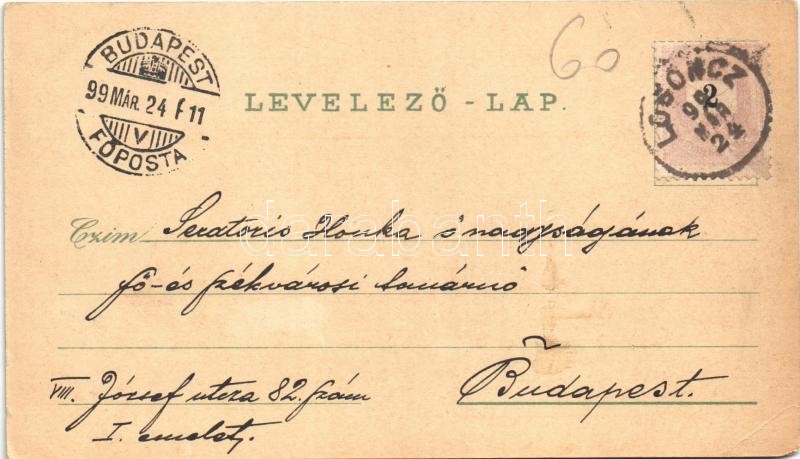 60
BUDAPEST
99 MÁR. 24 F 11
V
FŐPOSTA
LEVELEZŐ-LAP.
2
LOSONCZ
24
darabanth
Czim Seratoris Ilonka ő nagyságának
fő-és székvárosi tanárnő
Budapest.
VIII. József utcza 82. szám
I. emelet.